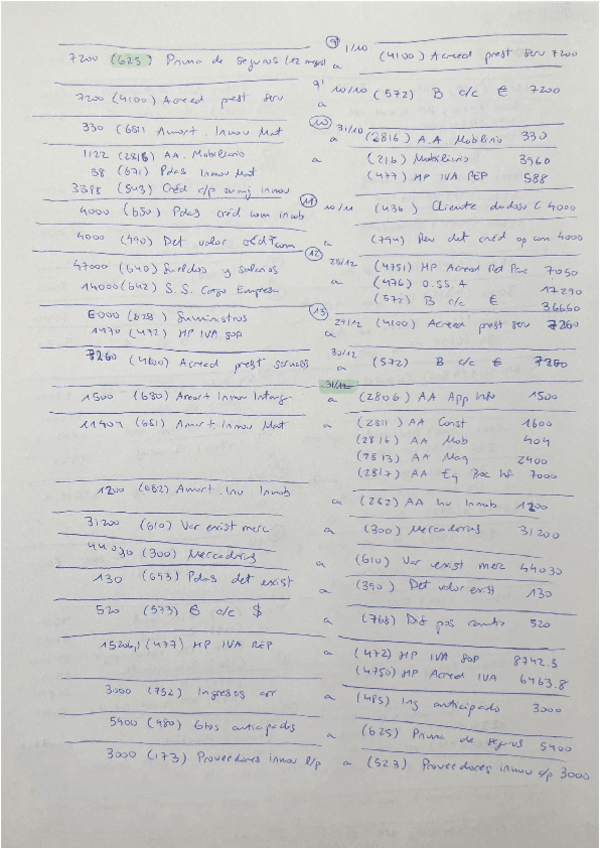 9 1/10
7200 (625) Prima de seguros (12 meses) a (4100) Acreed prest serv 7200
9' 10/10
7200 (4100) Acreed prest serv a (572) B c/c € 7200
10 31/10
330 (681) Amort. Inmov Mat a (2816) A.A. Mobiliario 330
1122 (2816) AA. Mobiliario a (216) Mobiliario 3960
38 (671) Pdas Inmov Mat (477) HP IVA REP 588
3388 (543) Créd c/p enaj inmov
11 10/11
4000 (650) Pdas créd com incob (436) Cliente dudoso C 4000
4000 (490) Det valor créd com a (794) Rev det créd op com 4000
12 28/12
47000 (640) Sueldos y salarios (4751) HP Acreed Ret Prac 7050
14000 (642) S.S. Cargo Empresa a (476) O.SS.A 17290
(572) B c/c € 36660
13
6000 (628) Suministros 29/12 (4100) Acreed prest serv 7260
1470 (472) HP IVA SOP a
30/12
7260 (4100) Acreed prest servicios a (572) B c/c € 7260
31/12
1500 (680) Amort Inmov Intang a (2806) AA App Info 1500
11404 (681) Amort Inmov Mat a (2811) AA Const 1600
(2816) AA Mob 404
(2813) AA Maq 2400
(2817) AA Eq Proc Inf 7000
1200 (682) Amort. Inv Inmob a (282) AA Inv Inmob 1200
31200 (610) Var exist merc a (300) Mercaderías 31200
44030 (300) Mercaderías a (610) Var exist merc 44030
130 (693) Pdas det exist a (390) Det valor exist 130
520 (573) B c/c $ a (768) Dif pos cambio 520
15206,1 (477) HP IVA REP a (472) HP IVA SOP 8742.3
(4750) HP Acreed IVA 6463.8
3000 (752) Ingresos arr a (485) Ing anticipado 3000
5400 (480) Gtos anticipados a (625) Prima de seguros 5400
3000 (173) Proveedores inmov l/p a (523) Proveedores inmov c/p 3000